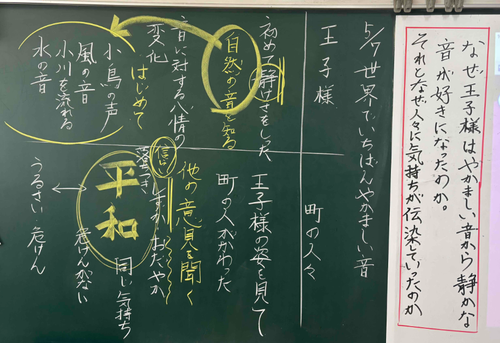 なぜ王子様はやかましい音から静かな
音が好きになったのか。
それとなぜ人々に気持ちが伝染していったのか
5/7 世界でいちばんやかましい音
王子様
初めて静けさをしった
自然の音を知る
音に対する心情の
変化
はじめて
小鳥の声
風の音
小川を流れる
水の音
町の人々
王子様の姿を見て
町の人がかわった
他の意見を聞く
信
落ちつき
しずか おだやか
平和
同じ気持ち
危けんがない
うるさい 危けん